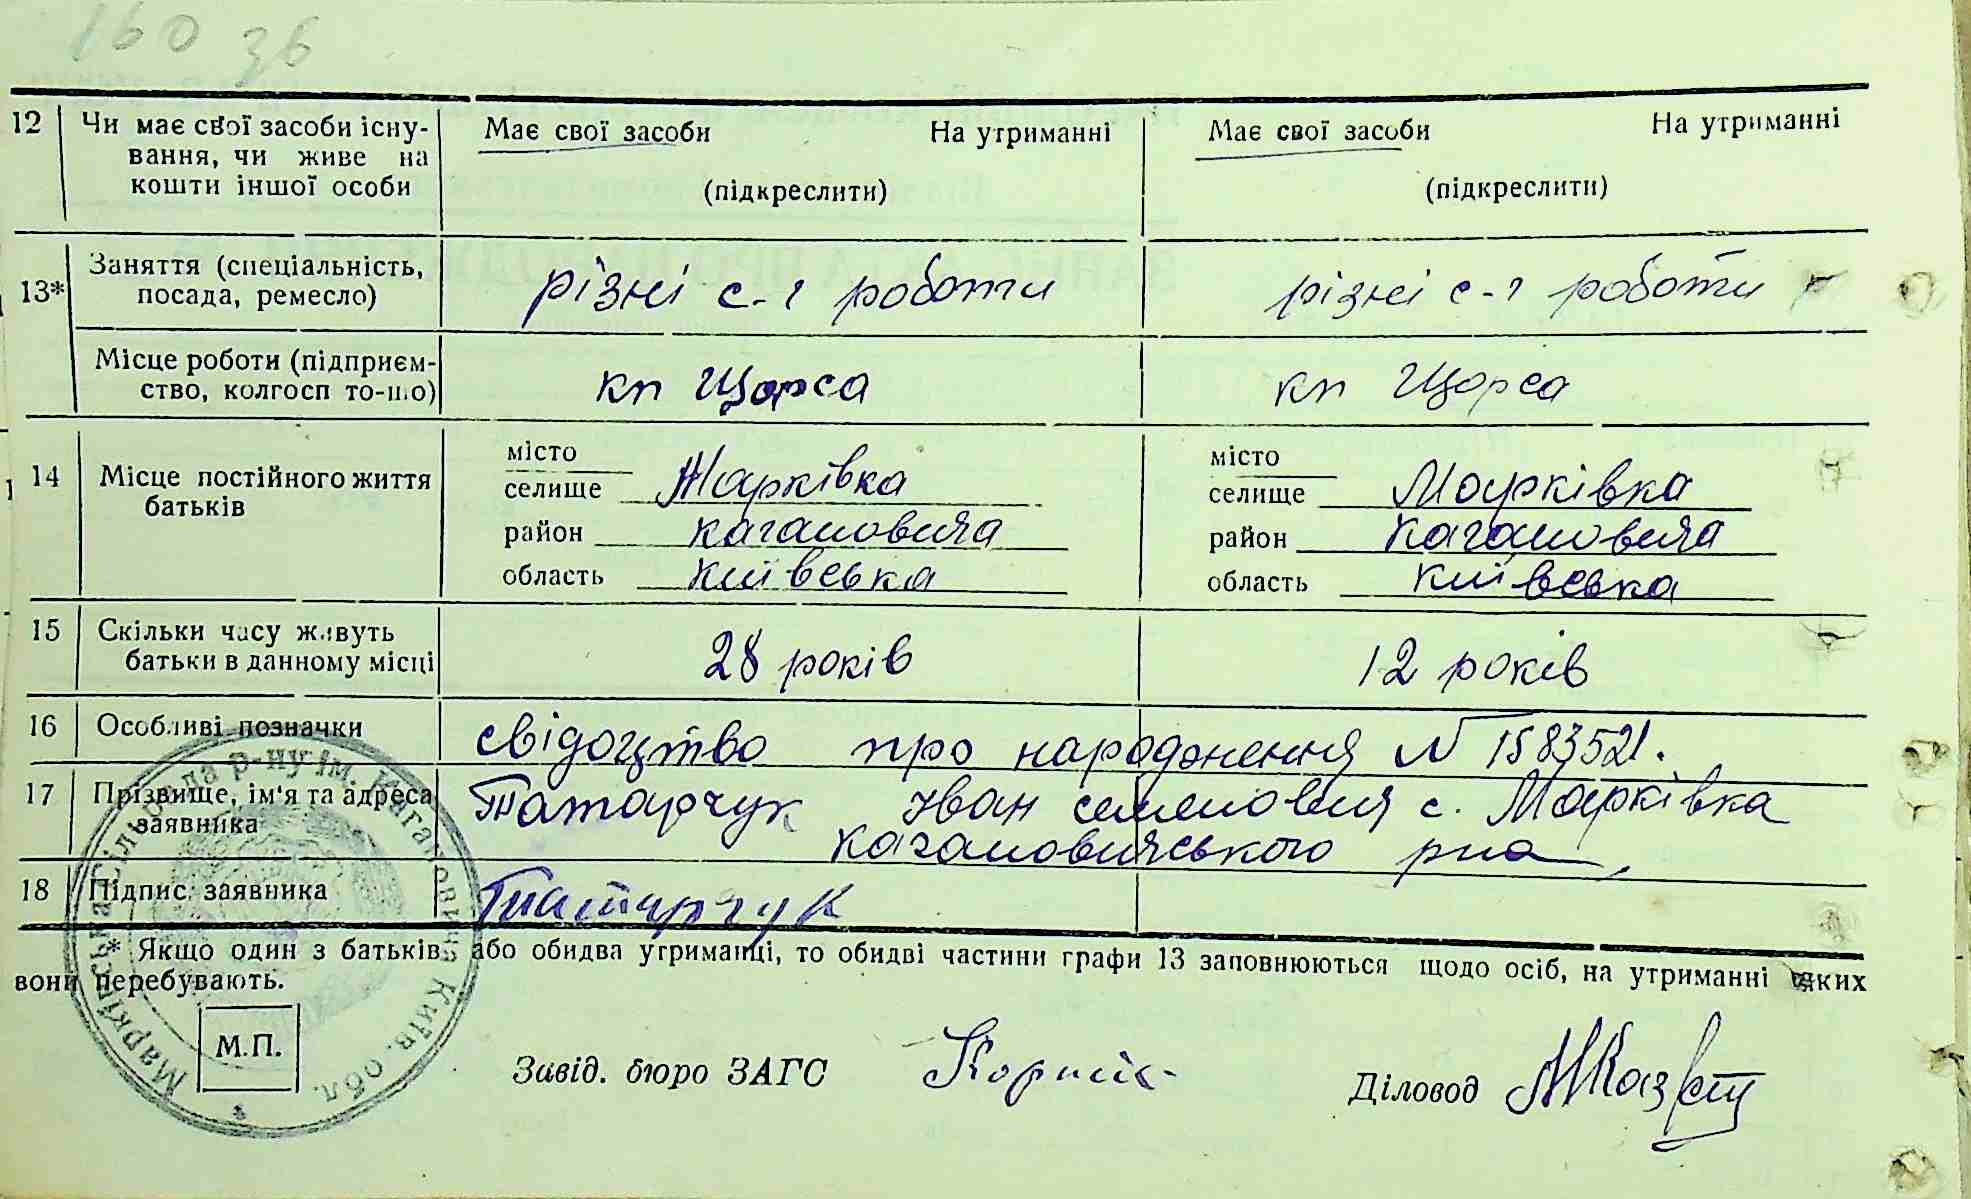 160 зв
12 Чи має свої засоби існу- Має свої засоби На утриманні Має свої засоби На утриманні
вання, чи живе на
кошти іншої особи (підкреслити) (підкреслити)
13* Заняття (спеціальність, різні с-г роботи різні с-г роботи
посада, ремесло)
Місце роботи (підприєм- кп Щорса кп Щорса
ство, колгосп то-що)
14 Місце постійного життя місто місто
батьків селище Марківка селище Марківка
район Кагановича район Кагановича
область Київська область Київська
15 Скільки часу живуть 28 років 12 років
батьки в данному місці
16 Особливі позначки свідоцтво про народження N 1583521.
17 Прізвище, ім'я та адреса Татарчук Іван семенович с. Марківка
заявника Кагановичського рна
18 Підпис заявника Татарчук
* Якщо один з батьків або обидва утриманці, то обидві частини графи 13 заповнюються щодо осіб, на утриманні яких
вони перебувають.
Марківська сільрада р-ну ім. Кагановича Київ. обл.
М.П.
Завід. бюро ЗАГС Діловод